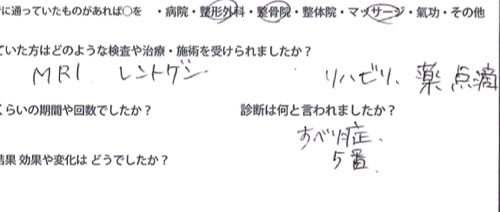 に通っていたものがあれば○を ・病院・整形外科・整骨院・整体院・マッサージ・氣功・その他
ていた方はどのような検査や治療・施術を受けられましたか？
MRI レントゲン リハビリ、薬 点滴
くらいの期間や回数でしたか？ 診断は何と言われましたか？
すべり症、
5番
結果 効果や変化は どうでしたか？